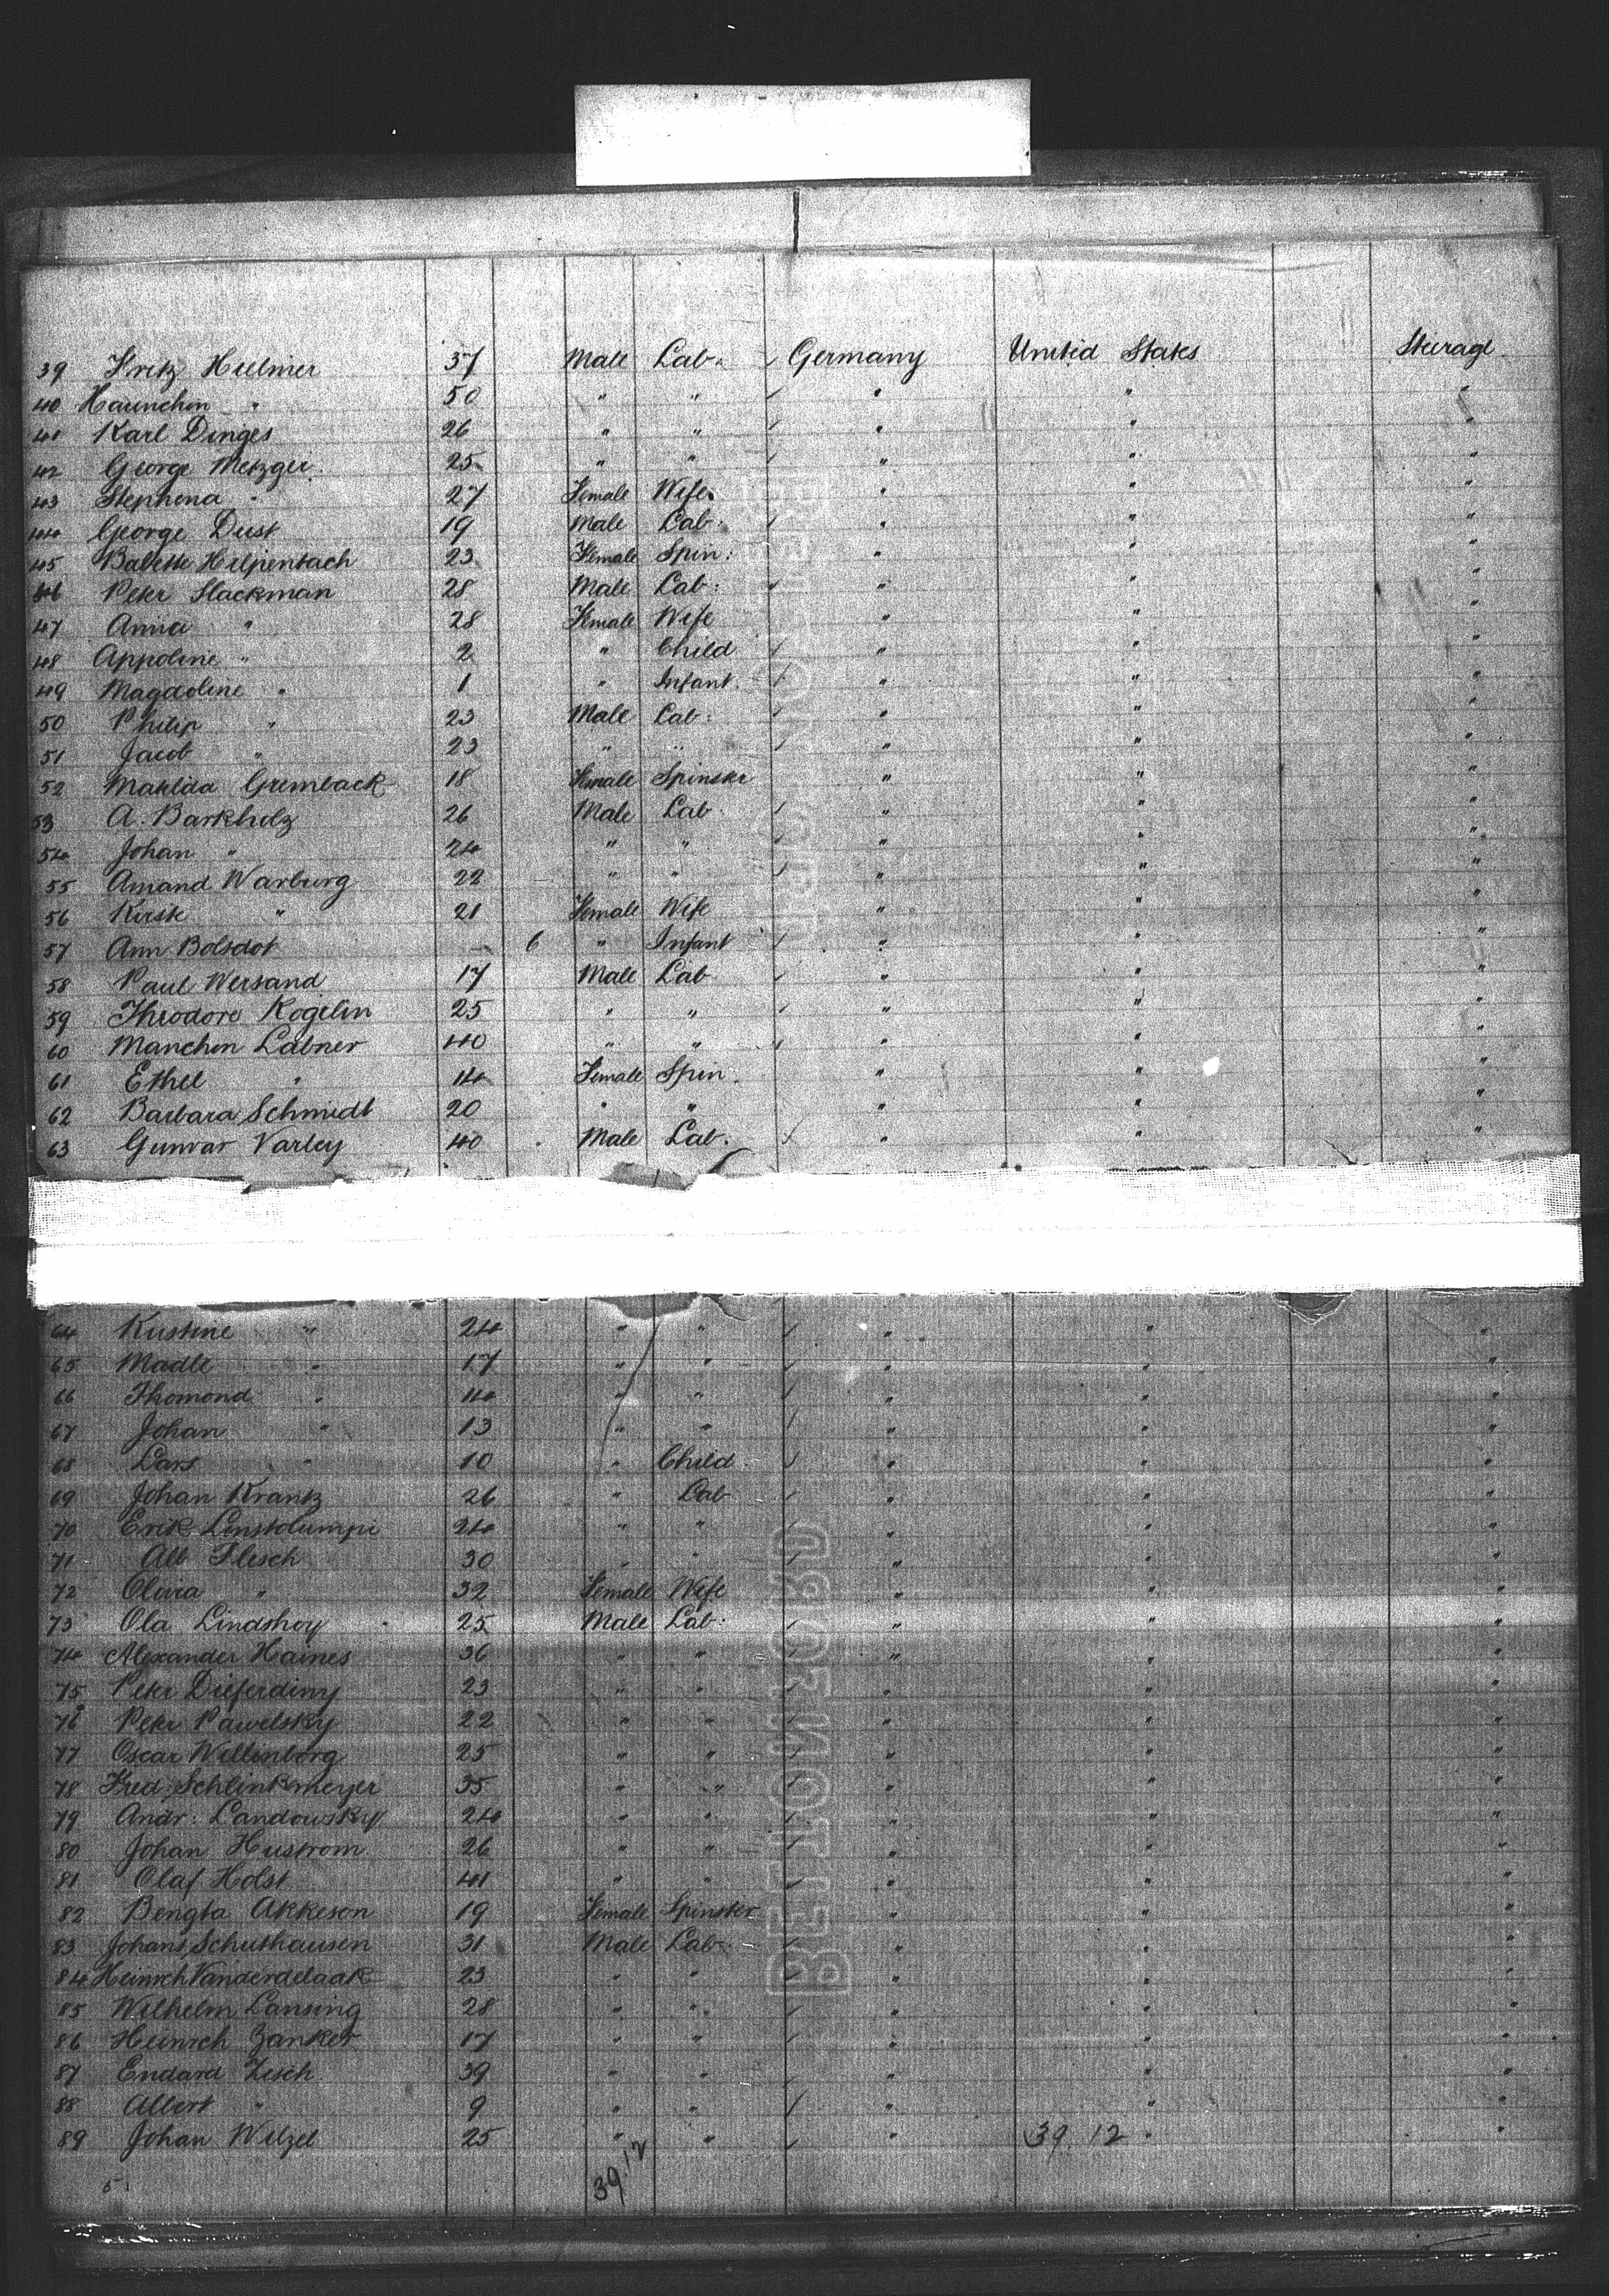 39 Fritz Hielmer 37 Male Lab: Germany United States Steerage
40 Haunchin " 50 " " " " "
41 Karl Dinges 26 " " " " "
42 George Metzger 25 " " " " "
43 Stephena " 27 Female Wife " " "
44 George Dust 19 Male Lab: " " "
45 Babette Hilpenbach 23 Female Spin: " " "
46 Peter Slackman 28 Male Lab: " " "
47 Anna " 28 Female Wife " " "
48 Appoline " 2 " Child " " "
49 Magdoline " 1 " Infant " " "
50 Philip " 23 Male Lab: " " "
51 Jacob " 23 " " " " "
52 Matilda Gremback 18 Female Spinster " " "
53 A. Barkholz 26 Male Lab " " "
54 Johan " 24 " " " " "
55 Amand Warburg 22 " " " " "
56 Kirste " 21 Female Wife " " "
57 Ann Bolsdot 6 " Infant " " "
58 Paul Wersand 17 Male Lab " " "
59 Theodore Kogelin 25 " " " " "
60 Manchen Labner 40 " " " " "
61 Ethel " 14 Female Spin. " " "
62 Barbara Schmidt 20 " " " " "
63 Gunvar Varley 40 Male Lab. " " "
64 Kustine " 24 " " " " "
65 Madle " 17 " " " " "
66 Thomond " 14 " " " " "
67 Johan " 13 " " " " "
68 Lars " 10 " Child " " "
69 Johan Krantz 26 " Lab " " "
70 Erik Linstolumpi 24 " " " " "
71 Alb Flesch 30 " " " " "
72 Olivia " 32 Female Wife " " "
73 Ola Lindshoy 25 Male Lab: " " "
74 Alexander Haines 36 " " " " "
75 Peter Dieferdiny 23 " " " " "
76 Peter Pawelsky 22 " " " " "
77 Oscar Willenborg 25 " " " " "
78 Fred: Schlinkmeyer 35 " " " " "
79 Andr: Landowsky 24 " " " " "
80 Johan Hustrom 26 " " " " "
81 Olaf Holst 41 " " " " "
82 Bengta Akkeson 19 Female Spinster " " "
83 Johans Schuthausen 31 Male Lab: " " "
84 Heinrich Vanderdelaak 23 " " " " "
85 Wilhelm Lansing 28 " " " " "
86 Heinrich Zanker 17 " " " " "
87 Endard Zesch 39 " " " " "
88 Albert " 9 " " " " "
89 Johan Wilzel 25 " " " 39.12 " "
5 39.12